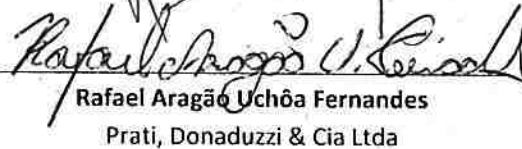 Rafael Aragão U.
Rafael Aragão Uchôa Fernandes
Prati, Donaduzzi & Cia Ltda